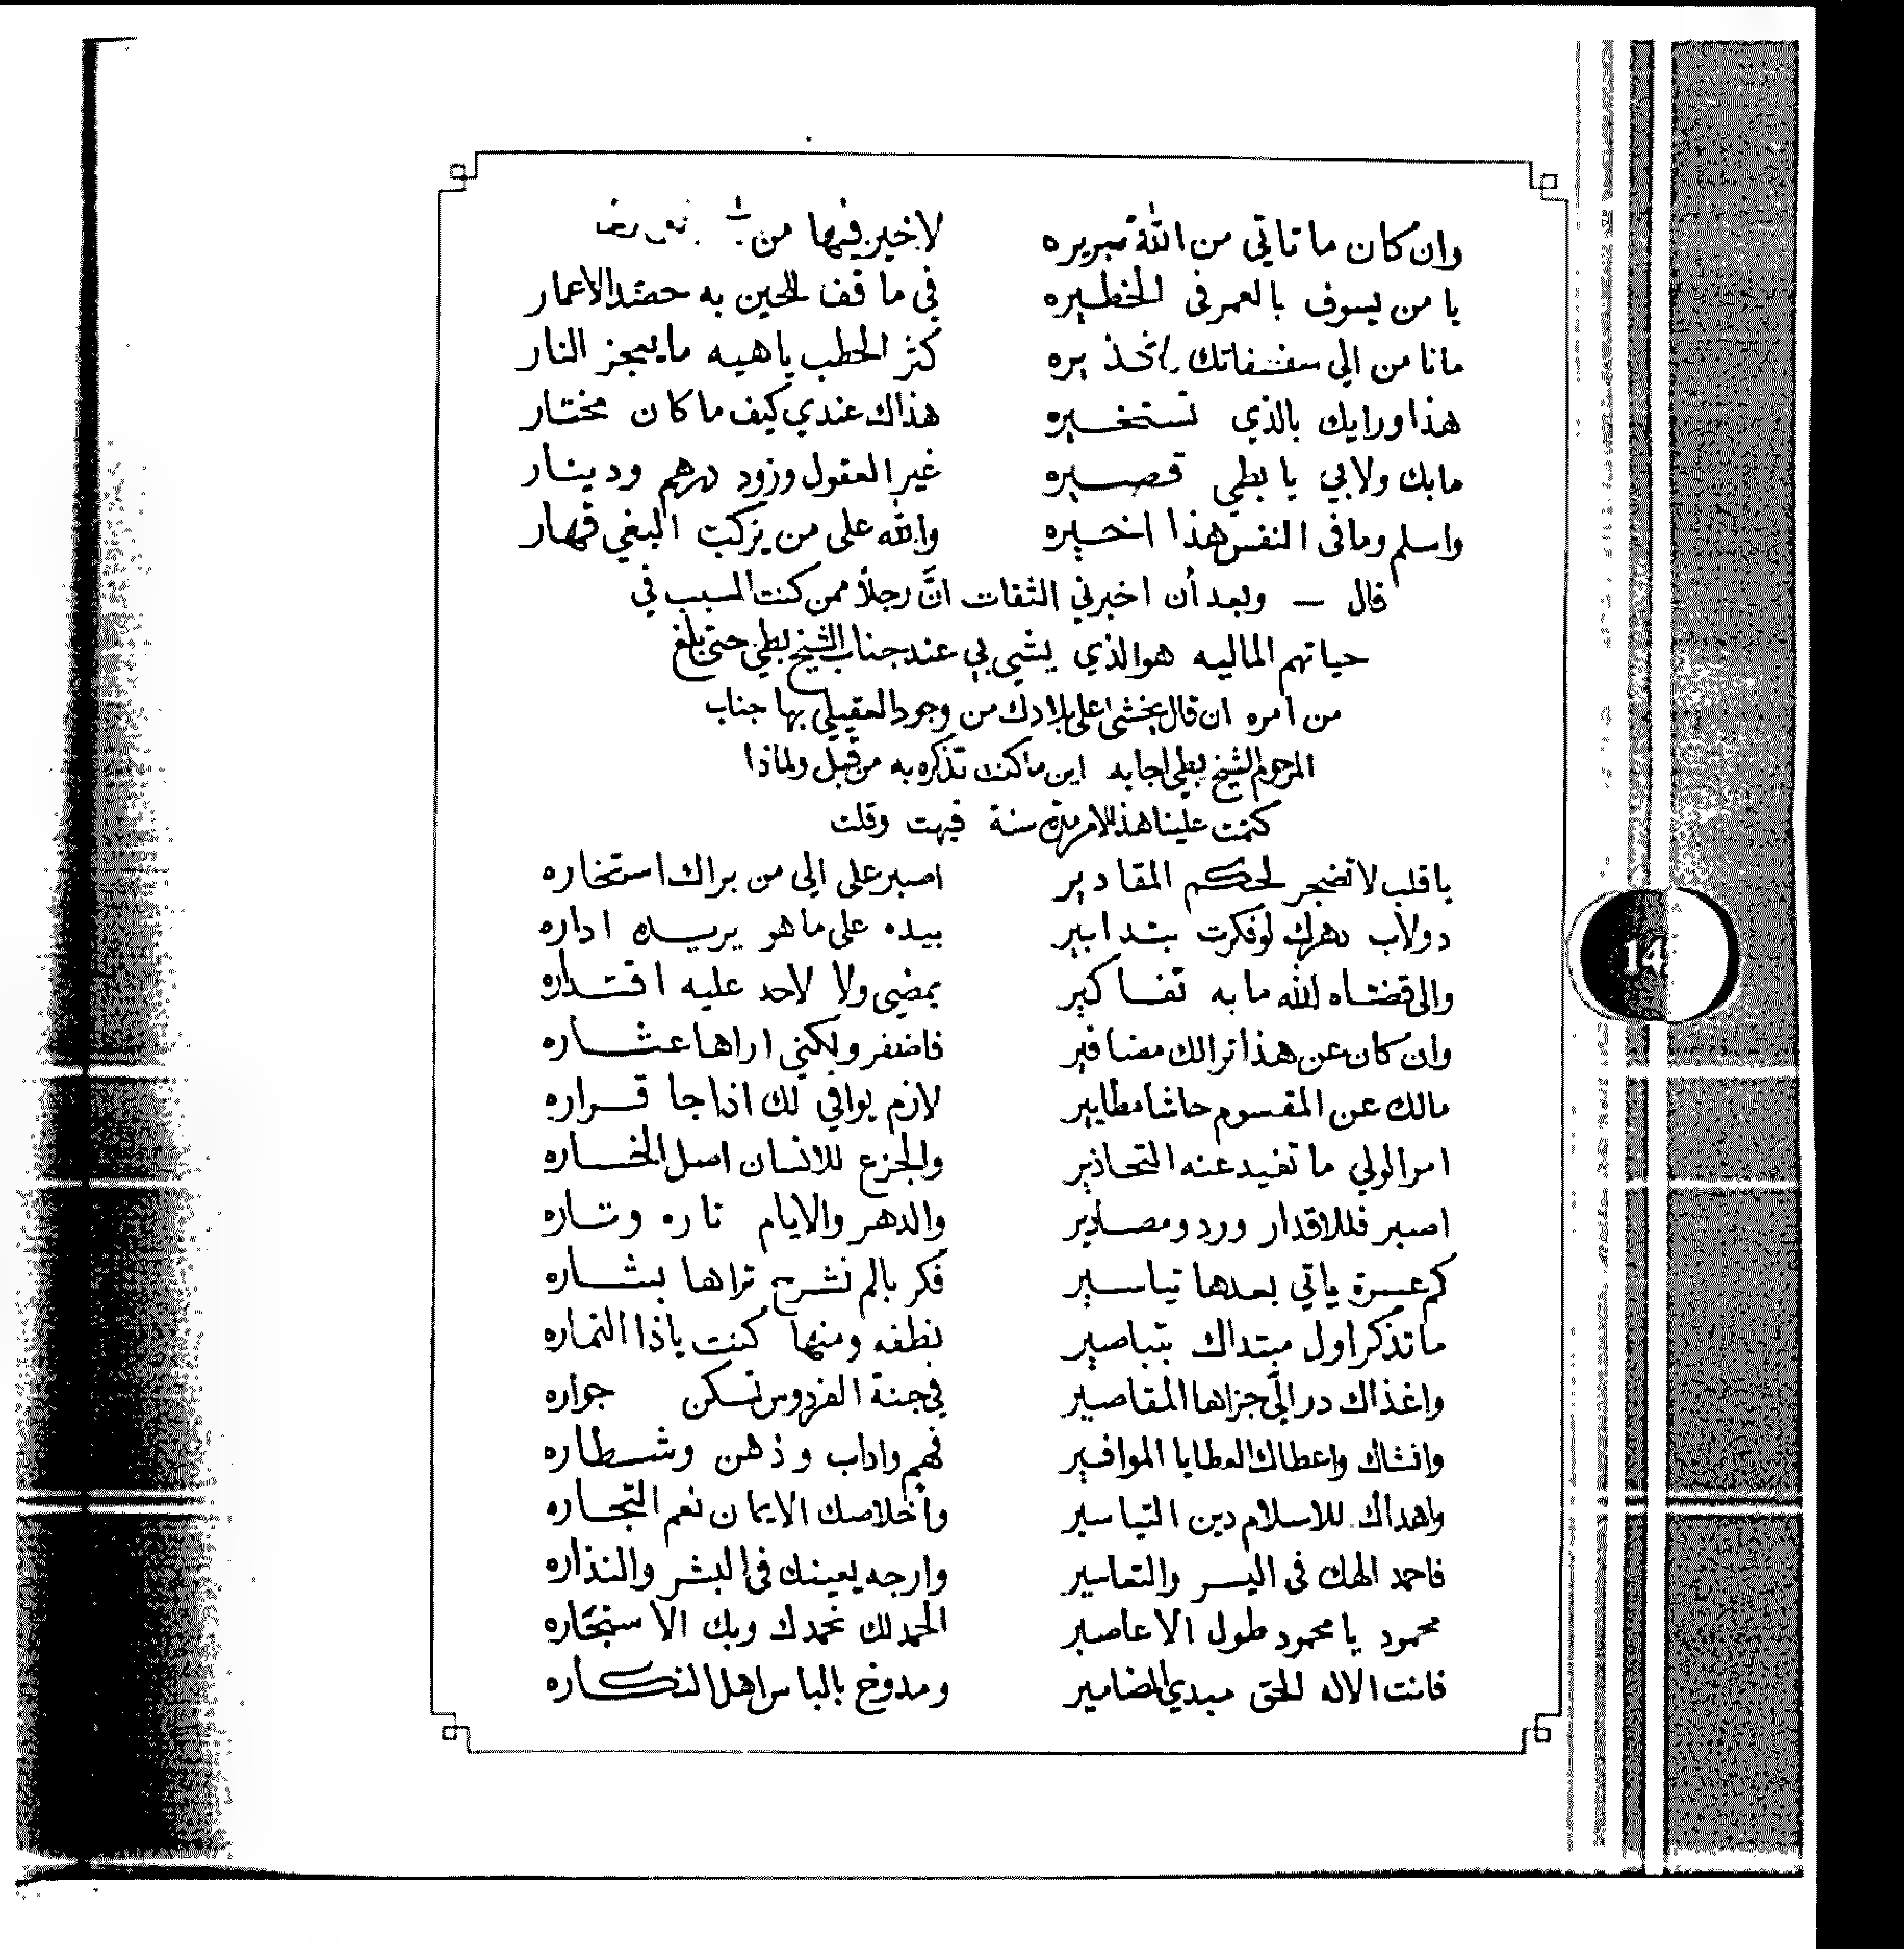 وان كان ما تاتي من الله تبريره لا خير فيها من
يا من يسوف بالعمر في الخطيره في ما قف للحين به حصد الاعمار
مانا من الي سفسفاتك ياخذ بره كثر الحطب ياهيه ما يعجز النار
هذا ورايك بالذي تستخيره هذاك عندي كيف ما كان مختار
مابك ولابي يا بطي قصيره غير العقول وزود درهم ودينار
واسلم وما في النفس هذا اخيره والله على من يركب البغي قهار
قال — وبعد أن اخبرني الثقات انَّ رجلاً ممن كنت السبب في
حياتهم الماليه هو الذي يشي بي عند جناب الشيخ بطي حتى بلغ
من امره ان قال يخشى على بلادك من وجود العقيلي بها جناب
المرحوم الشيخ بطي اجابه اين ما كنت تذكره به من قبل ولماذا
كتمت علينا هذا الامر مدة سنة فبهت وقلت
يا قلب لا تضجر لحكم المقادير اصبر على الي من براك استخاره
دولاب دهرك لو فكرت بتدابير بيده على ما هو يريده اداره
والى قضاه الله ما به تفاكير يمضي ولا لاحد عليه اقتداره
وان كان عن هذا ترالك مضافير فاضفر ولكني اراها عثاره
مالك عن المقسوم حاشا مطايير لازم يوافي لك اذا جا قراره
امر الولي ما تفيد عنه التحاذير والجزع للانسان اصل الخساره
اصبر فللاقدار ورد ومصادير والدهر والايام تاره وتاره
كم عسرة ياتي بعدها تياسير فكر بالم نشرح تراها بشاره
ما تذكر اول مبتداك بتباصير نطفه ومنها كنت ياذا النماره
واغذاك در الّي جزاها المقاصير في جنة الفردوس تسكن جواره
وانشاك واعطاك العطايا الموافير فهم واداب وذهن وشطاره
واهداك للاسلام دين التياسير واخلاصك الايمان نعم التجاره
فاحمد الهك في اليسر والتعاسير وارجه يعينك في البشر والنذاره
محمود يا محمود طول الاعاصير الحمد لك نحمدك وبك الاستجاره
فانت الاله الحق مبدي المضامير ومدوخ بالباس اهل النكاره
14